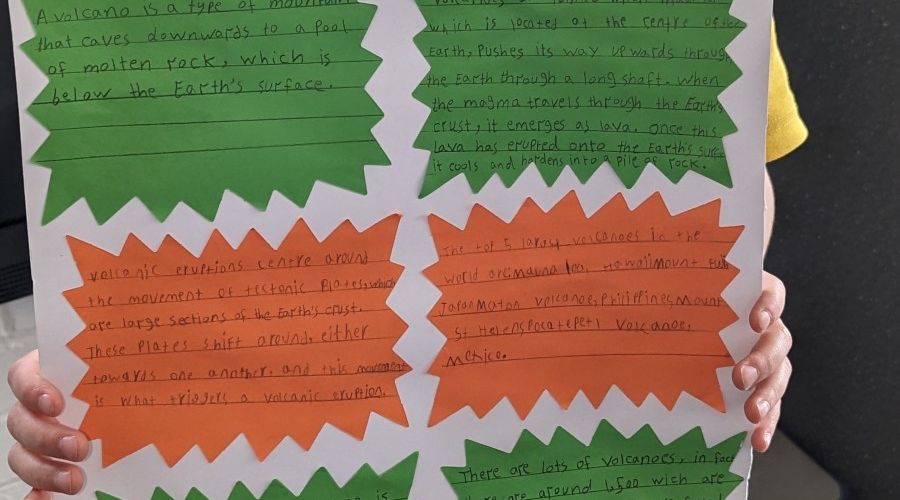 A volcano is a type of mountain
that caves downwards to a pool
of molten rock, which is
below the Earth's surface.
which is located at the centre of the
Earth, Pushes its way upwards through
the Earth through a long shaft. When
the magma travels through the Earth's
crust, it emerges as lava. Once this
lava has erupted onto the Earth's surf
it cools and hardens into a pile of rock.
volcanic eruptions centre around
the movement of testonic plates, which
are large sections of the Earth's crust.
These plates shift around, either
towards one another, and this movement
is what triggers a volcanic eruption.
The top 5 largest volcanoes in the
world are mauna loa, Hawaii mount Fuji
Japan Mayon volcanoe, Philippines, Mount
St Helens Pocatepetl Volcanoe,
Mexico.
is
There are lots of volcanoes, in fact
there are around 1,500 wich are